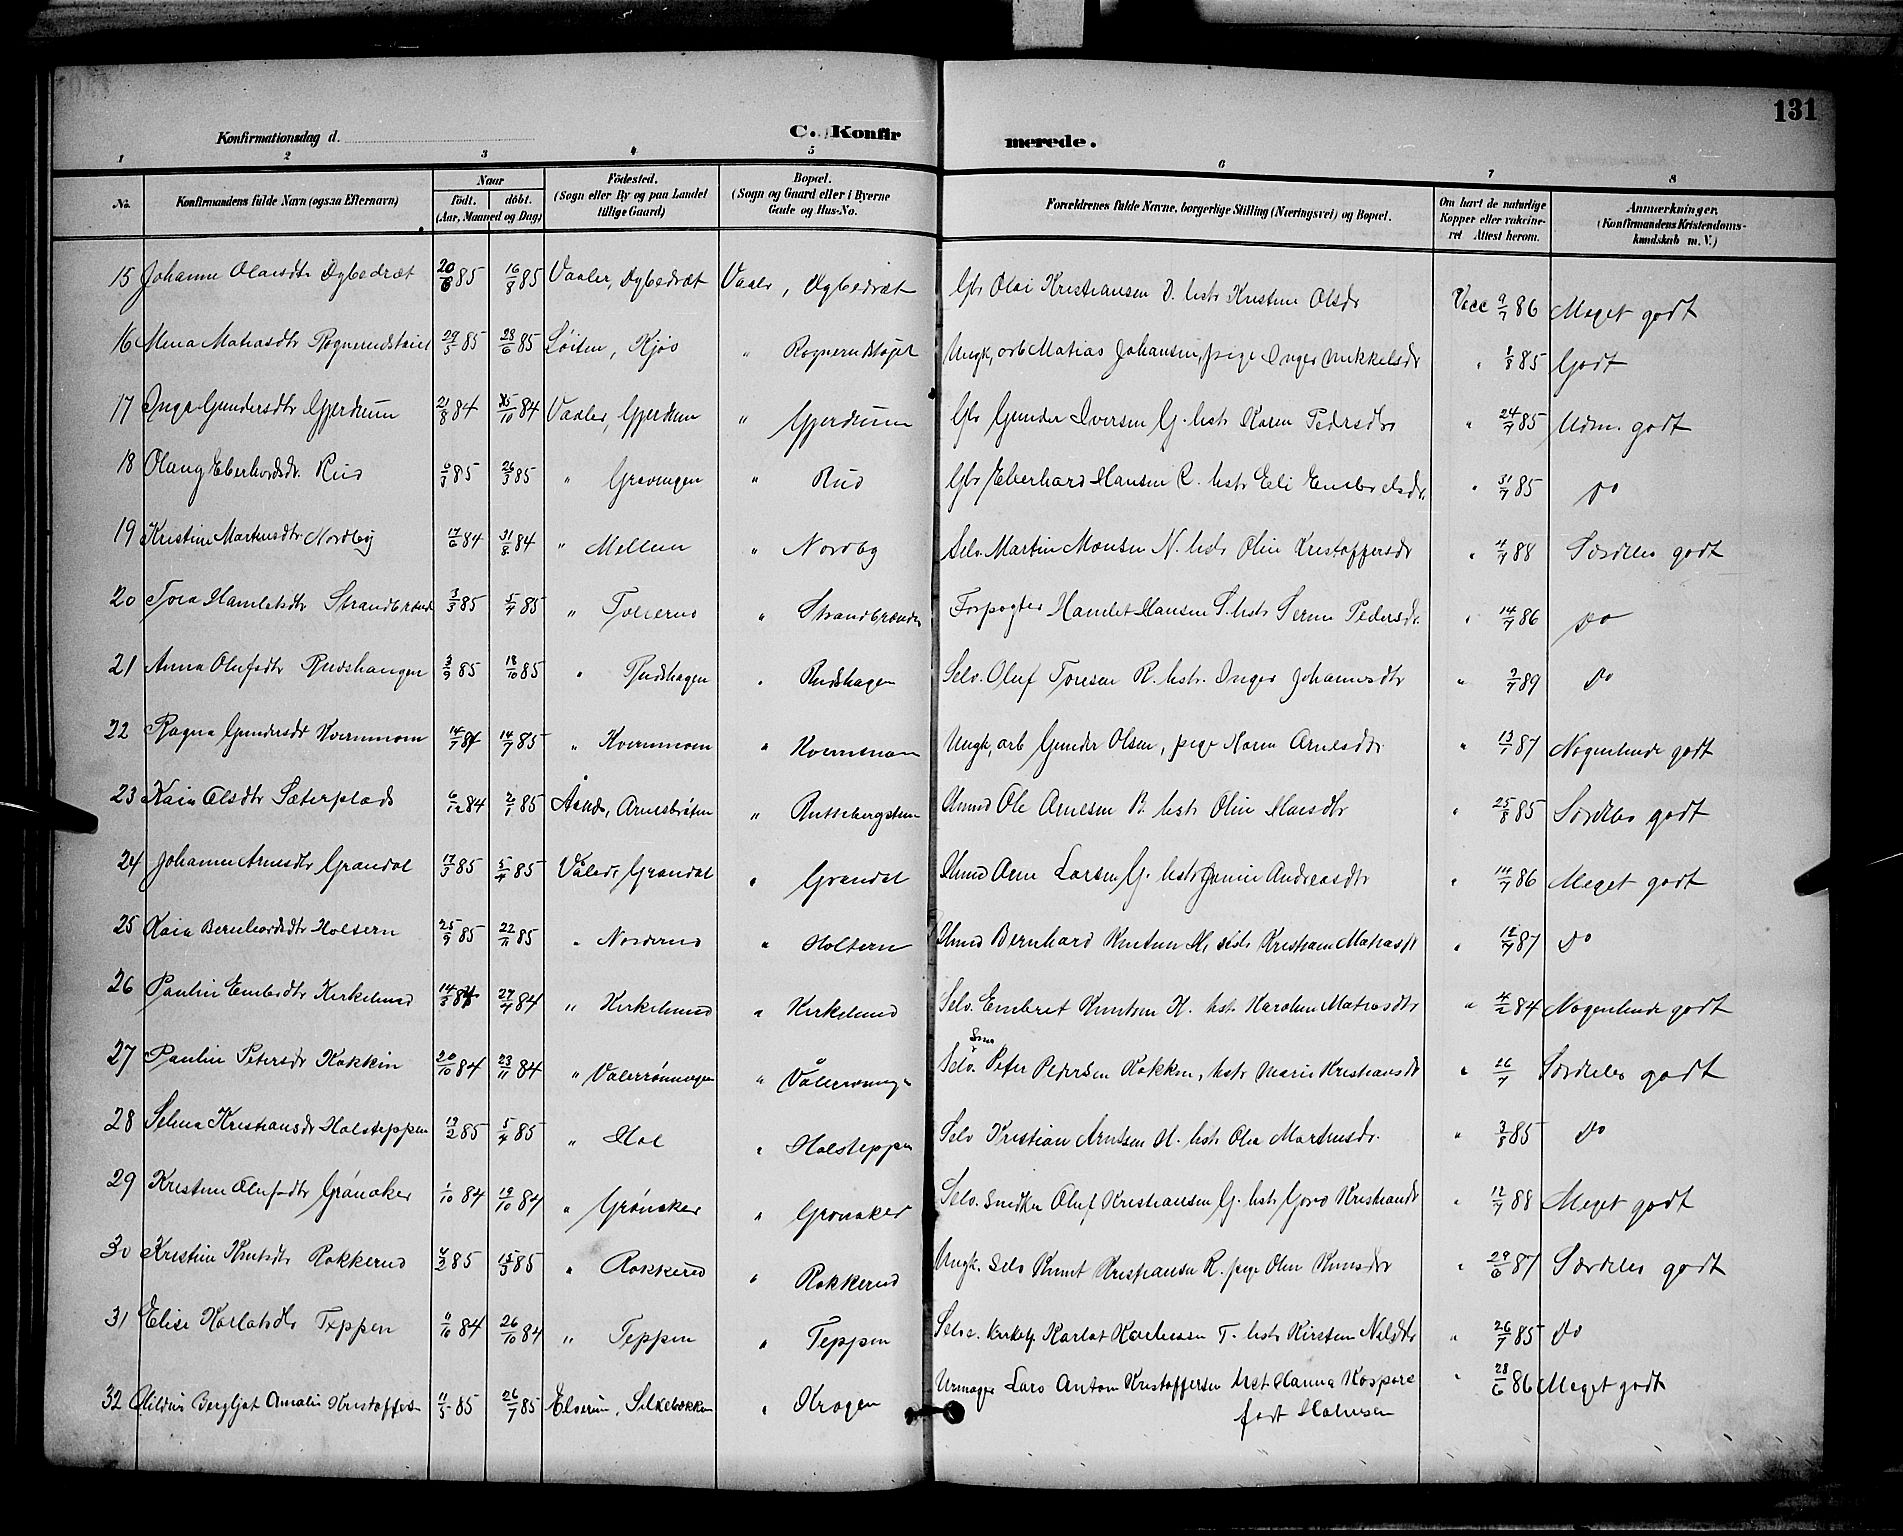 131
Konfirmationsdag d. C. Konfir merede.
1 2 3 4 5 6 7 8
No. Konfirmandens fulde Navn (ogsaa Efternavn) Naar født. døbt. (Aar, Maaned og Dag) Fødested. (Sogn eller By og paa Landet tillige Gaard) Bopæl. (Sogn og Gaard eller i Byerne Gade og Hus-No. Forældrenes fulde Navne, borgerlige Stilling (Næringsvei) og Bopæl. Om havt de naturlige Kopper eller vaccineret Attest herom. Anmærkninger. (Konfirmandens Kristendomskundskab m. V.)
15 Johanne Olaisdtr Dybedræt 20/6 85 16/8 85 Vaaler, Dybedræt Vaaler, Dybedræt Gbr Olai Kristiansen D. hstr Kristine Olsdr Vacc 9/7 86 Meget godt
16 Mena Matiasdtr Rognerudstøiel 29/5 85 28/6 85 Løiten, Kjøs " Rognerudstøjel Ungk, arb Matias Johansen, pige Inger Mikkelsdr " 85 Godt
17 Inga Gundersdtr Gjerdrum 21/8 84 /10 84 Vaaler, Gjerdrum " Gjerdrum Gbr Gunder Iversen G. hstr Karen Pedrsdtr " 24/7 85 Udm. godt
18 Olaug Eberhardsdr. Rud /3 85 26/3 85 " Grevingen " Rud Gbr Eberhard Hansen R. hstr Eli Embretsdr. " 31/7 85 do
19 Kristine Martinsdtr Nordby 17/6 84 31/8 84 " Mellem " Nordby Selv. Martin Monsen N. hstr Olin Kristoffersdr " 4/7 88 Særdeles godt
20 Tora Hamletsdtr Strandbrænd 3/3 85 5/4 85 " " Strandbrænden Forpagter Hamlet Hansen S. hstr Serine Pedersdr. " 14/7 86 do
21 Anna Olufsdtr Rudshaugen 3/9 85 18/10 85 " Rudshagen " Rudshagen Selv. Oluf Toresen R. hstr. Inger Johannesdtr " 2/7 89 do
22 Ragna Gundersdt Kvernmoen 14/7 84 14/7 85 " Kvernmoen " Kvernmoen Ungk, arb Gunder Olsen, pige Karen Arnesdtr " 13/7 87 Nogenlunde godt
23 Kaia Olsdtr Sæterplads 6/12 84 2/1 85 Aasnes, Arnesbråten " Husmd Ole Arnesen hstr Olin " 25/8 85 Særdeles godt
24 Johanne Arnesdtr Grandal 17/3 85 5/4 85 Våler, Grandal " Grandal Husmd Arne Larsen G. hstr Andreasdtr " 14/7 86 Meget godt
25 Kaia Bernhardsdtr Holtern 25/9 85 22/11 85 " Norderud " Holtern Husmd Bernhard Knutsen H. hstr Kristiane Matiasdt " 18/7 87 do
26 Pauline Embrdtr Kirkelund 14/3 84 27/4 84 " Kirkelund " Kirkelund Selv. Embret Knutsen K. hstr Karoline Matiasdtr " 4/2 84 Nogenlunde godt
27 Pauline Petersdr Kokkin 20/10 84 23/11 84 " Vålerrønningen " Vålerrønningen Selv. Smed Peter Pedersen Kokkin, hstr Marie Kristiansdt " 26/7 Særdeles godt
28 Selma Kristiansdr Holsteppen 13/2 85 5/4 85 " Hol " Holsteppen Selv Kristian Arntsen H. hstr Olea Martinsdr. " 3/8 85 do
29 Kristine Olufsdtr Grønåker 1/10 84 19/10 84 " Grønåker " Gronaker Selv. snedker Oluf Kristiansen G. hstr Goro Kristiansdt " 12/7 88 Meget godt
30 Kristine Knutsdtr Rokkerud 4/2 85 15/3 85 " Rokkerud " Rokkerud Ungk. selv Knut Kristiansen R. pige Olin " 29/6 87 Særdeles godt
31 Elise Karlotsdtr Teppen 84 26/10 84 " Teppen " Teppen Selve. Karlot T. hstr Kirsten Nilsdtr " 26/7 85 do
32 Hildur Bergljot Amalie Kristoffersen 11/5 85 26/7 85 Elverum, Silkebækken " Krogen Urmager Lars Anton Kristoffersen hst Hanna Kaspara " 28/6 86 Meget godt
født Halvorsen